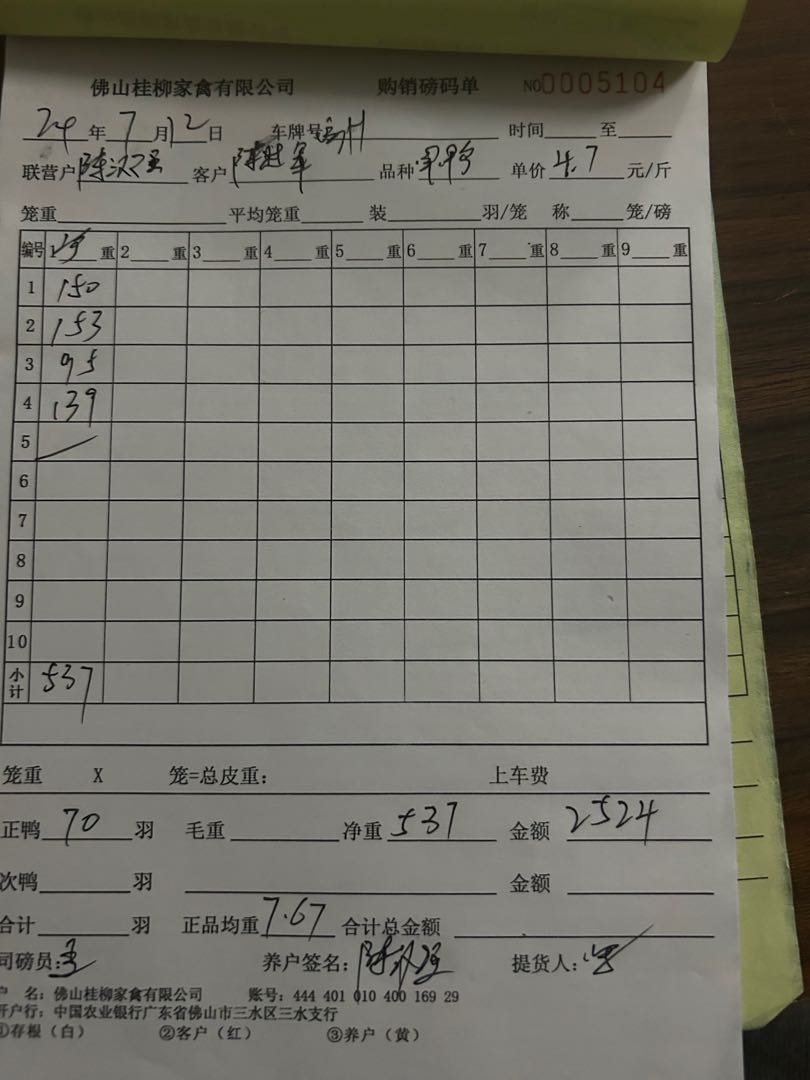 佛山桂柳家禽有限公司 购销磅码单 NO0005104
24年7月12日 车牌号 时间 至
联营户陈汉强 客户陈 品种 单价4.7元/斤
笼重 平均笼重 装 羽/笼 称 笼/磅
编号 重 2 重 3 重 4 重 5 重 6 重 7 重 8 重 9 重
1 150
2 153
3 95
4 139
5
6
7
8
9
10
小计 537
笼重 X 笼=总皮重: 上车费
正鸭70羽 毛重 净重537 金额2524
次鸭 羽 金额
合计 羽 正品均重7.67 合计总金额
司磅员: 养户签名:陈汉强 提货人:
户 名: 佛山桂柳家禽有限公司 账号: 444 401 010 400 169 29
开户行: 中国农业银行广东省佛山市三水区三水支行
①存根(白) ②客户(红) ③养户(黄)